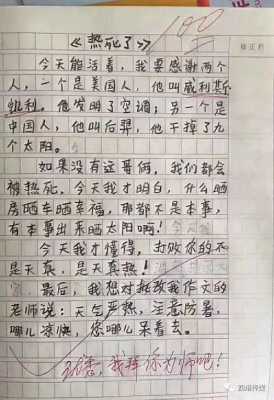 100
修正栏
《热死了》
今天能活着，我要感谢两个
人，一个是美国人，他叫威利斯
凯利。他发明了空调；另一个是
中国人，他叫后羿，他干掉了九
个太阳。
如果没有这哥俩，我们都会
被热死。今天我才明白，什么晒
房晒车晒幸福，那都不是本事，
有本事出来晒太阳啊！
今天我才懂得，打败你的不
是天真，是天真热！
最后，我想对批改我作文的
老师说：天气严热，注意防暑，
哪儿凉快，您哪儿呆着去。
我拜你为师吧！